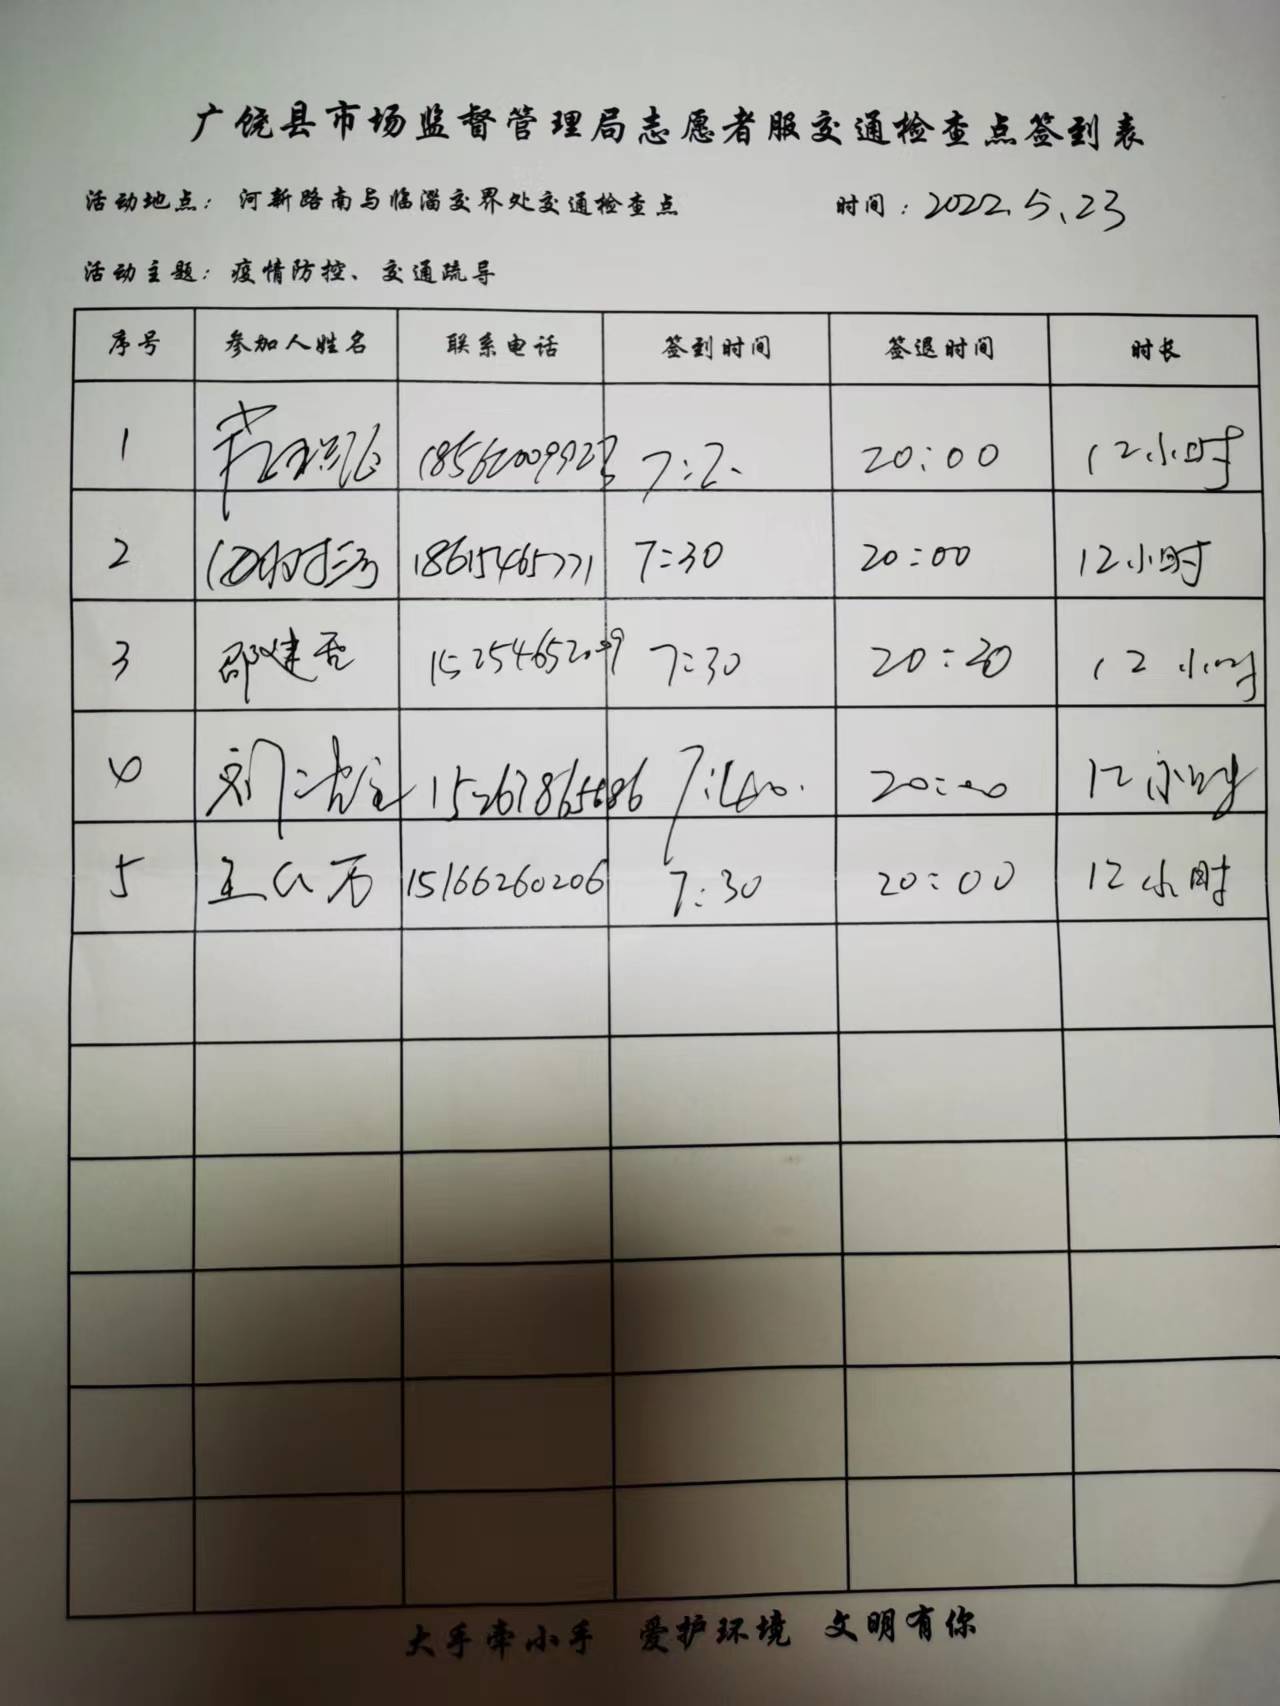 广饶县市场监督管理局志愿者服交通检查点签到表
活动地点：河新路南与临淄交界处交通检查点 时间：2022.5.23
活动主题：疫情防控、交通疏导
序号 参加人姓名 联系电话 签到时间 签退时间 时长
1 20:00 12小时
2 18615465771 7:30 20:00 12小时
3 邵建 15254652009 7:30 12小时
4 刘 7:40. 20:00 12小时
5 王 15166260206 7:30 20:00 12小时
大手牵小手 爱护环境 文明有你